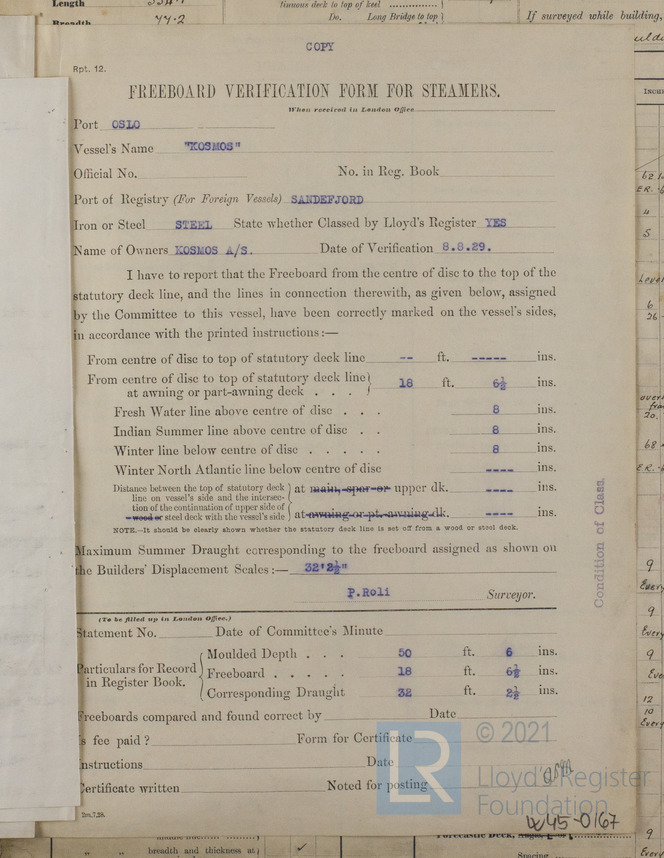 Length
Breadth 77.2
tinuous deck to top of keel
Do. Long Bridge to top
If surveyed while building,
COPY
Rpt. 12.
FREEBOARD VERIFICATION FORM FOR STEAMERS.
When received in London Office
Port OSLO
Vessel's Name "KOSMOS"
Official No. No. in Reg. Book
Port of Registry (For Foreign Vessels) SANDEFJORD
Iron or Steel STEEL State whether Classed by Lloyd's Register YES
Name of Owners KOSMOS A/S. Date of Verification 8.8.29.
I have to report that the Freeboard from the centre of disc to the top of the
statutory deck line, and the lines in connection therewith, as given below, assigned
by the Committee to this vessel, have been correctly marked on the vessel's sides,
in accordance with the printed instructions:—
From centre of disc to top of statutory deck line -- ft. ----- ins.
From centre of disc to top of statutory deck line
at awning or part-awning deck . . . 18 ft. 6½ ins.
Fresh Water line above centre of disc . . . 8 ins.
Indian Summer line above centre of disc . . 8 ins.
Winter line below centre of disc . . . . . 8 ins.
Winter North Atlantic line below centre of disc ---- ins.
Distance between the top of statutory deck
line on vessel's side and the intersec-
tion of the continuation of upper side of
wood or steel deck with the vessel's side
at main, spar or upper dk. ---- ins.
at awning or pt. awning dk. ---- ins.
NOTE.—It should be clearly shown whether the statutory deck line is set off from a wood or steel deck.
Maximum Summer Draught corresponding to the freeboard assigned as shown on
the Builders' Displacement Scales:— 32'2½"
P.Roli Surveyor.
(To be filled up in London Office.)
Statement No. Date of Committee's Minute
Particulars for Record
in Register Book.
Moulded Depth . . . 50 ft. 6 ins.
Freeboard . . . . . 18 ft. 6½ ins.
Corresponding Draught 32 ft. 2½ ins.
Freeboards compared and found correct by Date
Is fee paid ? Form for Certificate
Instructions Date
Certificate written Noted for posting
2m.7.28.
Condition of Class.
© 2021
Lloyd's Register
Foundation
W45-0167
breadth and thickness at
Forecastle Deck,
Spacing